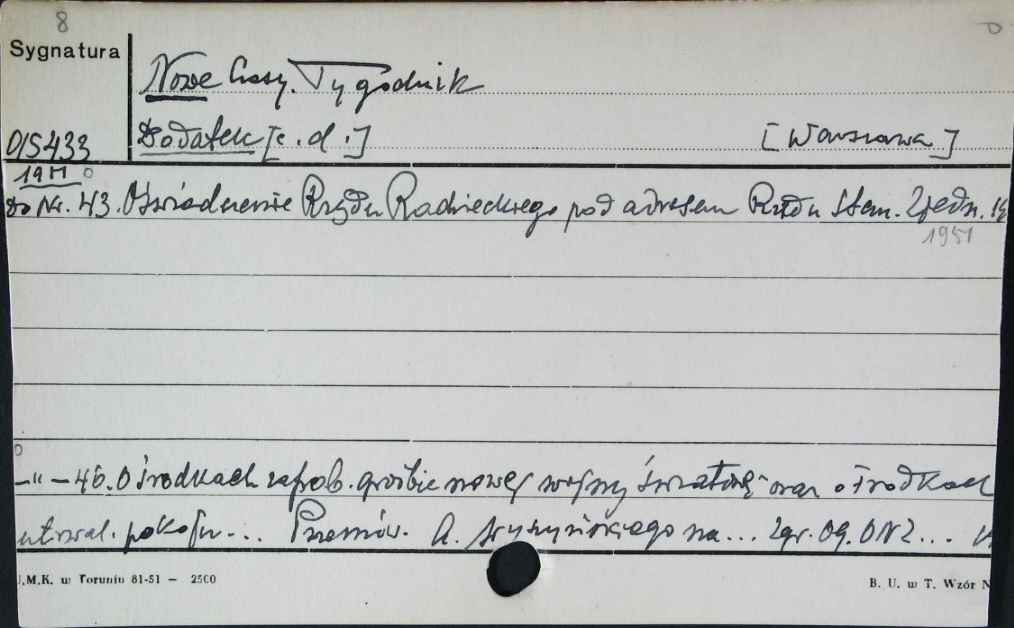 8
Sygnatura
Nowe Czasy. Tygodnik
Dodatek [c. d.] [Warszawa]
O/5433
1951
Do Nr. 43. Oświadczenie Rządu Radzieckiego pod adresem Rządu Stan. Zjedn.
1951
-"- 46. O środkach zapob. groźbie nowej wojny światowej oraz o środkach
utrwal. pokoju... Przemów. A. Wyszyńskiego na... Zgr. Og. ONZ...
U.M.K. w Toruniu 81-51 — 2500
B. U. w T. Wzór N